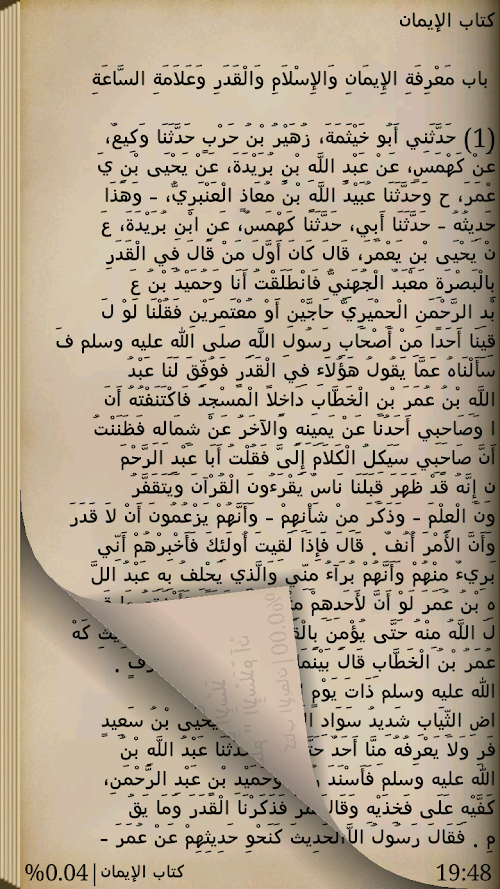 كتاب الإيمان
باب مَعْرِفَةِ الإِيمَانِ وَالإِسْلَامِ وَالْقَدَرِ وَعَلَامَةِ السَّاعَةِ
(1) حَدَّثَنِي أَبُو خَيْثَمَةَ، زُهَيْرُ بْنُ حَرْبٍ حَدَّثَنَا وَكِيعٌ،
عَنْ كَهْمَسٍ، عَنْ عَبْدِ اللَّهِ بْنِ بُرَيْدَةَ، عَنْ يَحْيَى بْنِ يَ
عْمَرَ، ح وَحَدَّثَنَا عُبَيْدُ اللَّهِ بْنُ مُعَاذٍ الْعَنْبَرِيُّ، - وَهَذَا
حَدِيثُهُ - حَدَّثَنَا أَبِي، حَدَّثَنَا كَهْمَسٌ، عَنِ ابْنِ بُرَيْدَةَ، عَ
نْ يَحْيَى بْنِ يَعْمَرَ، قَالَ كَانَ أَوَّلَ مَنْ قَالَ فِي الْقَدَرِ
بِالْبَصْرَةِ مَعْبَدٌ الْجُهَنِيُّ فَانْطَلَقْتُ أَنَا وَحُمَيْدُ بْنُ عَ
بْدِ الرَّحْمَنِ الْحِمْيَرِيُّ حَاجَّيْنِ أَوْ مُعْتَمِرَيْنِ فَقُلْنَا لَوْ لَ
قِينَا أَحَدًا مِنْ أَصْحَابِ رَسُولِ اللَّهِ صلى الله عليه وسلم فَ
سَأَلْنَاهُ عَمَّا يَقُولُ هَؤُلَاءِ فِي الْقَدَرِ فَوُفِّقَ لَنَا عَبْدُ
اللَّهِ بْنُ عُمَرَ بْنِ الْخَطَّابِ دَاخِلًا الْمَسْجِدَ فَاكْتَنَفْتُهُ أَنَ
ا وَصَاحِبِي أَحَدُنَا عَنْ يَمِينِهِ وَالآخَرُ عَنْ شِمَالِهِ فَظَنَنْتُ
أَنَّ صَاحِبِي سَيَكِلُ الْكَلَامَ إِلَىَّ فَقُلْتُ أَبَا عَبْدِ الرَّحْمَ
نِ إِنَّهُ قَدْ ظَهَرَ قِبَلَنَا نَاسٌ يَقْرَءُونَ الْقُرْآنَ وَيَتَقَفَّرُ
ونَ الْعِلْمَ - وَذَكَرَ مِنْ شَأْنِهِمْ - وَأَنَّهُمْ يَزْعُمُونَ أَنْ لَا قَدَرَ
وَأَنَّ الأَمْرَ أُنُفٌ . قَالَ فَإِذَا لَقِيتَ أُولَئِكَ فَأَخْبِرْهُمْ أَنِّي
بَرِيءٌ مِنْهُمْ وَأَنَّهُمْ بُرَآءُ مِنِّي وَالَّذِي يَحْلِفُ بِهِ عَبْدُ اللَّ
هِ بْنُ عُمَرَ لَوْ أَنَّ لأَحَدِهِمْ
لَ اللَّهُ مِنْهُ حَتَّى يُؤْمِنَ
عُمَرُ بْنُ الْخَطَّابِ قَالَ بَيْنَمَا
الله عليه وسلم ذَاتَ يَوْمٍ
اضِ الثِّيَابِ شَدِيدُ سَوَادِ يَحْيَى بْنِ سَعِيدٍ
فَرِ وَلَا يَعْرِفُهُ مِنَّا أَحَدٌ عَبْدُ اللَّهِ بْنُ
الله عليه وسلم فَأَسْنَدَ وَحُمَيْدِ بْنِ عَبْدِ الرَّحْمَنِ،
كَفَّيْهِ عَلَى فَخِذَيْهِ وَقَالَ فَذَكَرْنَا الْقَدَرَ وَمَا يَقُ
مِ . فَقَالَ رَسُولُ الْحَدِيثَ كَنَحْوِ حَدِيثِهِمْ عَنْ عُمَرَ -
19:48 كتاب الإيمان|%0.04